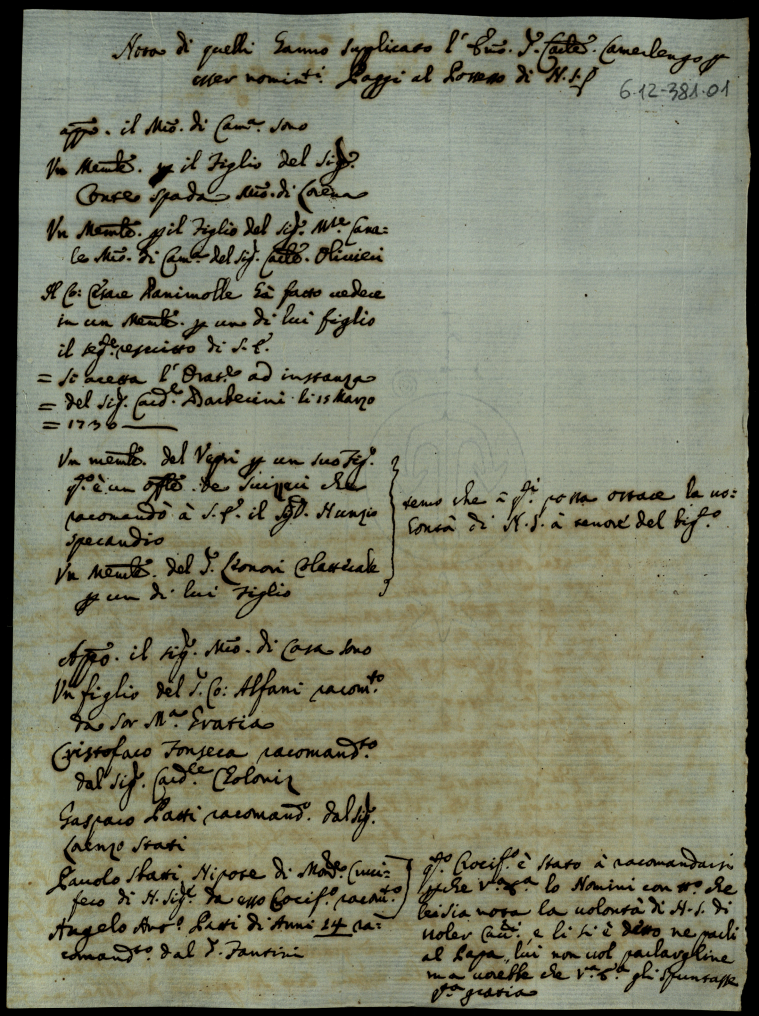 Nota di quelli hanno supplicato l' Emo. S. Carle. Camerlengo p
esser nominti. Paggi al Possesso di N. S.
6-12-381-01
appo. il Mro. di Camra. sono
Un Memle. p il Figlio del Sigr.
Conte Spada Mro. di Lorena
Un Memle. p il Figlio del Sigr. Mse Cana=
le Mro. di Camra del Sigr. Carle. Olivieri
Il Co: Cesare Ranimolle hà fatto vedere
in un Memle. p un di lui figlio
il segte. rescritto di S. E.
= Si accetta l' Oratre. ad instanza
= del Sigr. Cardle. Barberini li 15 Marzo
= 1730
Un memle. del Vepri p un suo Figo.
qsto è un offle. de Svizzeri che
racomandò à S. E. il Sigr. D. Nunzio
Sperandio
Un Memle. del S. Leonori
p un di lui Figlio
temo che à qsti possa ostare la vo:
lontà di N. S. à tenore del bigo.
Appo. il Sigr. Mro. di Casa sono
Un figlio del S. Co: Alfani racomto.
da Sor Ma. Gratia
Cristofaro Fonseca racomandto.
dal Sigr. Cardle Coloniz
Gasparo Passi racomando. dal Sigr.
Lorenzo Stati
Pavolo Statti Nipote di Monsr. Cruci=
fero di N. Sigre. da esso Crocifo. racomto.
Angelo Anto. Passi di Anni 14 ra=
comandto dal S. Fantini
qsto Crocifo. è stato à racomandarsi
pche Va. Ea. lo Nomini con tto. che
lei sia nota la volontà di N. S. di
voler Cavri. e li si è detto ne parli
al Papa, lui non vol parlargline
ma vorebbe che Va. Ea. gli spuntasse
qsta gratia